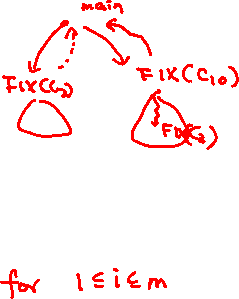 main
FIX(C₂) FIX(C₁₀)
FIX(C₂)
for 1 ≤ i ≤ m